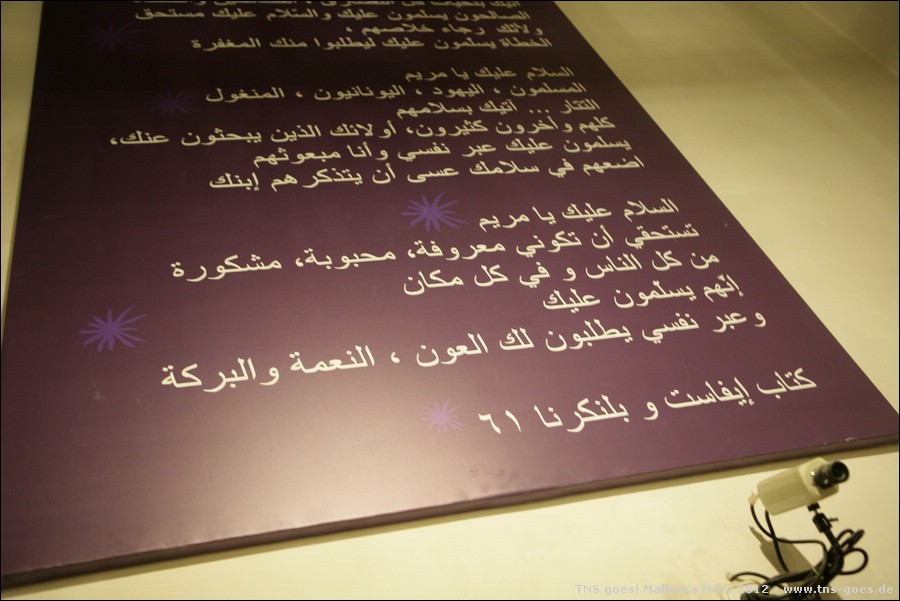 الصالحون يسلمون عليك والسلام عليك مستحق
ولانك رجاء خلاصهم ،
الخطاة يسلمون عليك ليطلبوا منك المغفرة
السلام عليك يا مريم
المسلمون ، اليهود ، اليونانيون ، المنغول
التتار ... أتيك بسلامهم
كلهم وأخرون كثيرون، أولائك الذين يبحثون عنك،
يسلمون عليك عبر نفسي وأنا مبعوثهم
اضعهم في سلامك عسى أن يتذكرهم إبنك
السلام عليك يا مريم
تستحقي أن تكوني معروفة، محبوبة، مشكورة
من كل الناس و في كل مكان
إنّهم يسلّمون عليك
وعبر نفسي يطلبون لك العون ، النعمة والبركة
كتاب إيفاست و بلنكرنا ٦١
TNS goes! Mallorca 2012 - www.tns-goes.de